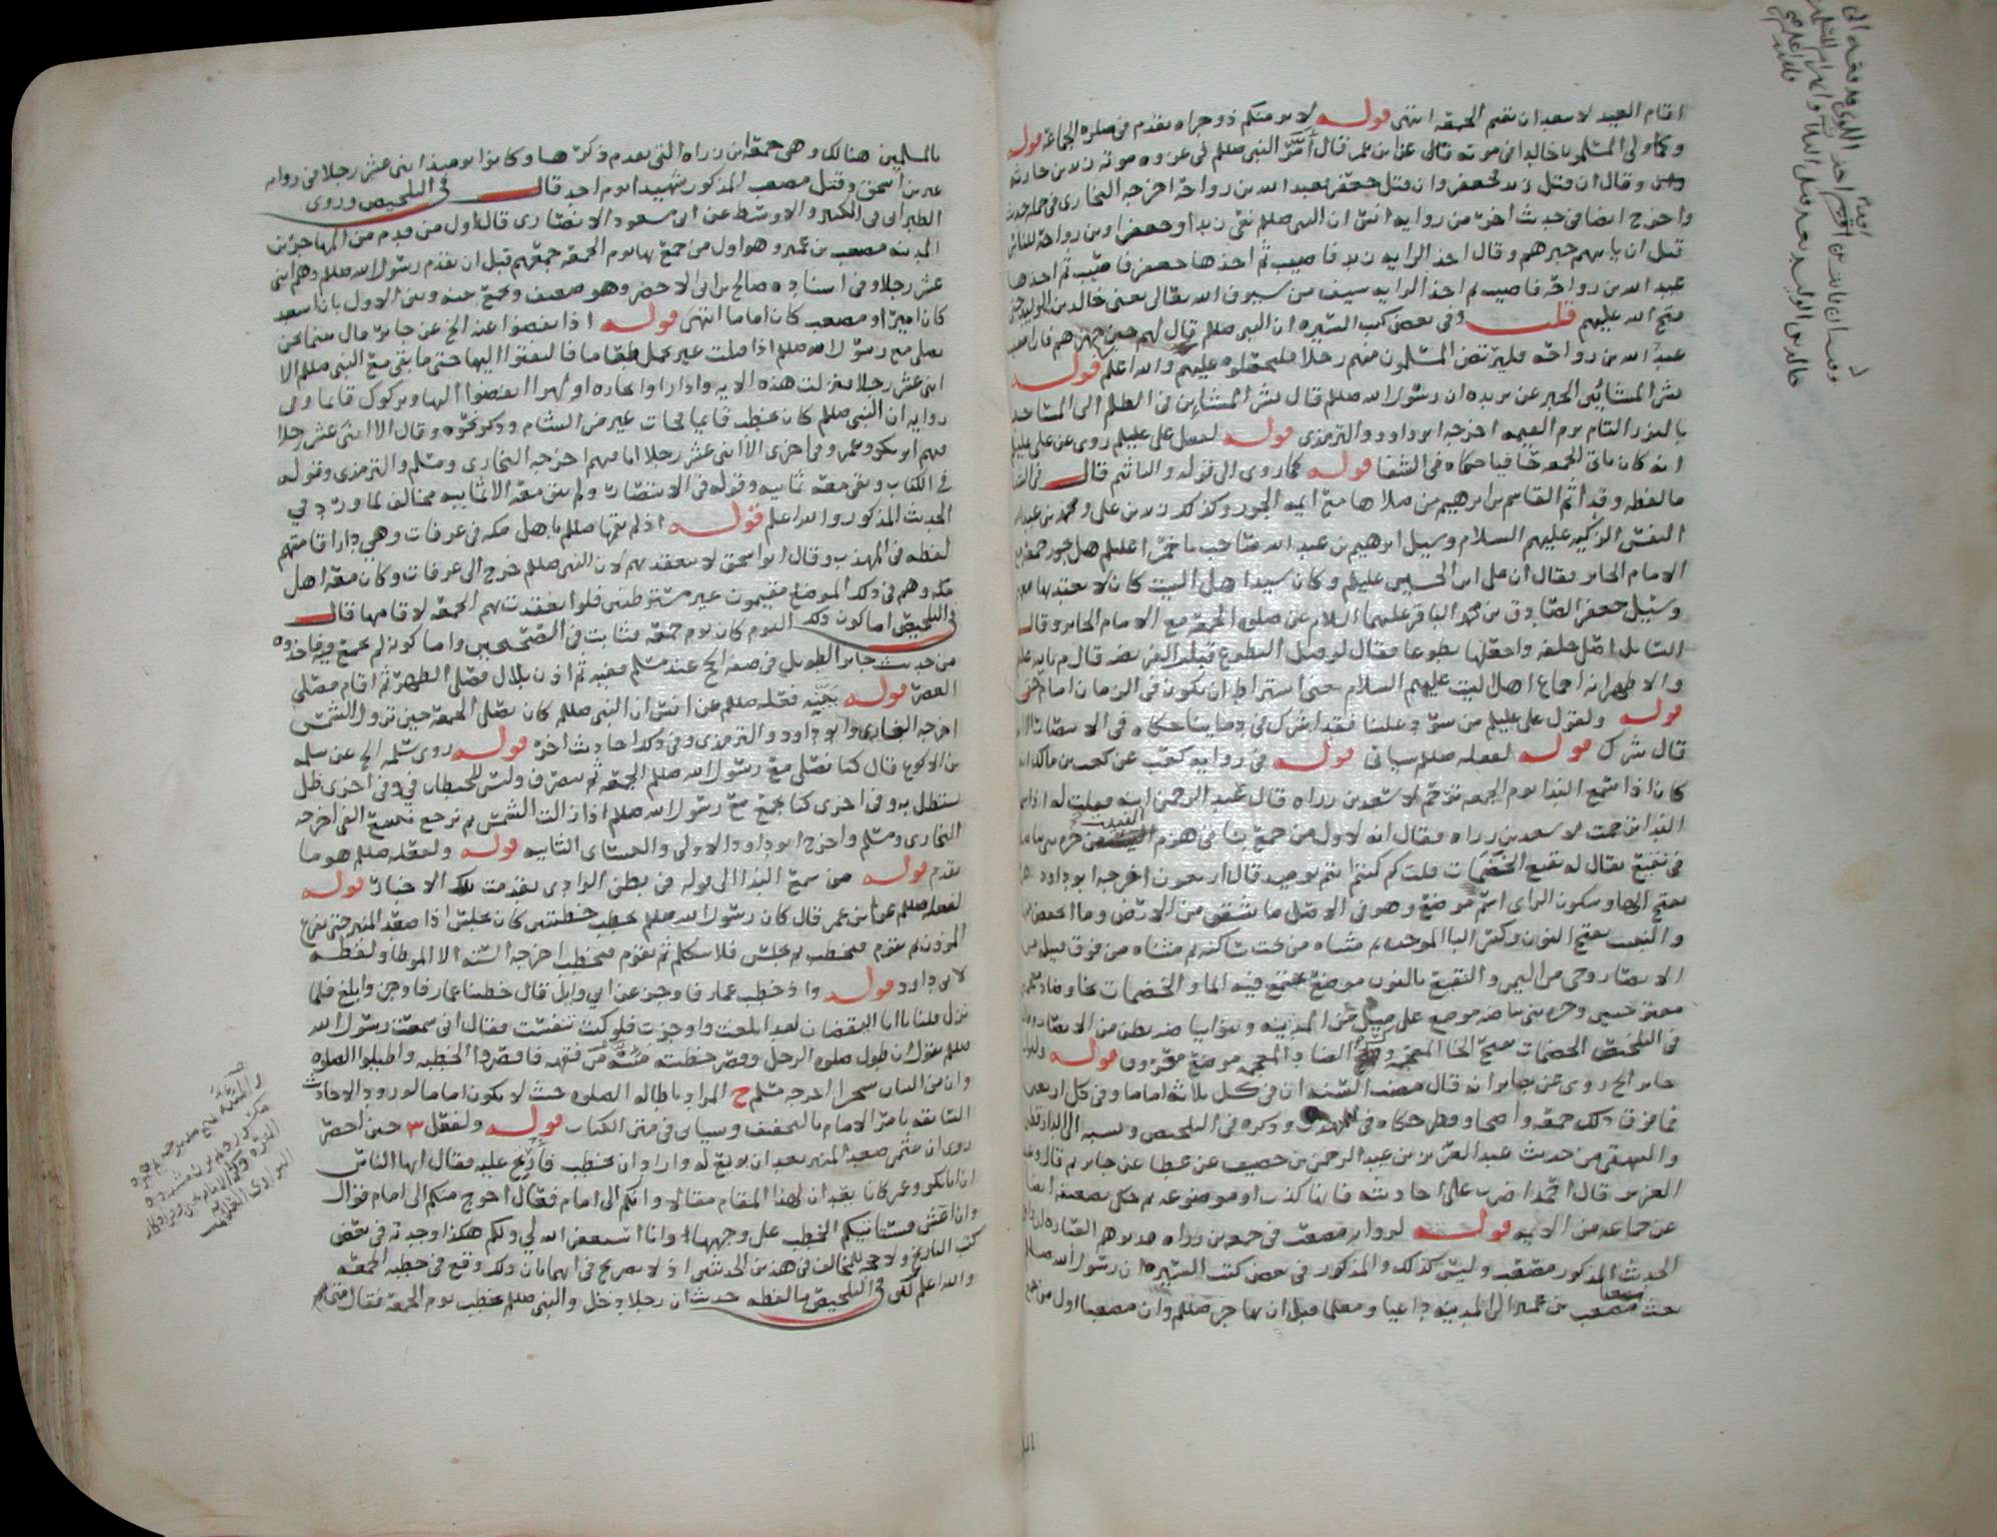 اقام العبيد لا بعد ان تقيم الجمعة انتهى قوله لا يومنكم ذو جراه يقدم في صلوة الجماعة قوله
وكما ولي المسلمون خالدا في موته قال عن ابن عمر قال أمّر النبي صللم في غزوه موته زيد بن حارثه
وقال ان قتل زيد فجعفر وان قتل جعفر فعبد الله بن رواحة اخرجه البخاري في جملة حديث
واخرج ايضا في حديث اخر من رواية انس ان النبي صللم نعى زيدا وجعفرا وبن رواحة للناس
قبل ان ياتيهم خبرهم وقال اخذ الراية زيد فاصيب ثم اخذها جعفر فاصيب ثم اخذها
عبد الله بن رواحة فاصيب ثم اخذ الراية سيف من سيوف الله تعالى يعني خالد بن الوليد حتى
فتح الله عليهم قلت وفي بعض كتب السيره ان النبي صللم قال لهم حين جهزهم فان اصيب
عبد الله بن رواحة فليرتض المسلمون منهم رجلا فليجعلوه عليهم والله اعلم قوله
بشر المشائين الخبر عن بريده ان رسول الله صللم قال بشر المشاين في الظلم الى المساجد
بالنور التام يوم القيمه اخرجه ابو داود والترمذي قوله لفعل علي عليلم روي عن علي عليلم
انه كان ياتي الجمعه حافيا حكاه في الشفا قوله كما روي الى قوله والناثم قال في الشفا
ما لفظه وقد اثم القاسم بن ابرهيم من صلاها مع ايمه الجور وكذلك زيد بن علي ومحمد بن عبد الله
النفس الزكيه عليهم السلام وسيل ابرهيم بن عبد الله صاحب باخمرا عليلم هل تجوز الجمعة مع
الامام الجاير فقال ان علي ابن الحسين عليلم وكان سيد اهل البيت كان لا يعتد بها معهم
وسيل جعفر الصادق بن محمد الباقر عليهما السلام عن صلوة الجمعة مع الامام الجاير وقال
السائل اصلي خلفه واجعلها تطوعا فقال لو قبل التطوع قبلت الفريضه قال
والاظهر انه اجماع اهل البيت عليهم السلام حتى اشتراط ان يكون في الزمان امام حق
قوله ولقول علي عليلم من سود علينا فقد اشرك في دمائنا حكاه في الانتصار
قال شرك قوله لفعله صللم سياتي قوله في رواية كعب عن كعب بن مالك انه
كان اذا سمع النداء يوم الجمعة ترحم لاسعد بن زراه قال عبد الرحمن ابنه فقلت له اذا سمعت
النداء ترحمت لاسعد بن زراه فقال انه لاول من جمع بنا في هزم النبيت من حره بني بياضه
في نقيع يقال له نقيع الخضمات قلت كم كنتم يوميذ قال اربعون اخرجه ابو داود
بفتح الها وسكون الزاي اسم موضع وهو في الاصل ما تشقق من الارض وما انخفض
والنبيت بفتح النون وكسر البا الموحده ثم مثناه من تحت ساكنه ثم مثناه من فوق قبيله من
الانصار وحي من اليمن والنقيع بالنون موضع يجتمع فيه الما والخضمات بخا وضاد
معجمتين وحره بني بياضه موضع على ميل من المدينه وبنو بياضه بطن من الانصار
في التلخيص الخضمات بفتح الخا المعجمه وكسر الضاد المعجمه موضع معروف قوله
جابر الخ روي عن جابر انه قال مضت السنه ان في كل ثلاثة اماما وفي كل اربعين
فما فوق ذلك جمعة واضحا وفطر حكاه في المهذب وذكره في التلخيص ونسبه الى الدارقطني
والبيهقي من حديث عبد العزيز بن عبد الرحمن بن خصيف عن عطا عن جابر ثم قال وعبد
العزيز قال احمد اضرب على احاديثه فانها كذب او موضوعه ثم حكى تضعيفه ايضا
عن جماعه من الايمه قوله لرواية مصعب في خبر بن زراه قد يوهم العباره
الحديث المذكور مصعب وليس كذلك والمذكور في بعض كتب السيره ان رسول الله صللم
بعث مصعب بن عمير الى المدينه داعيا ومعلما قبل ان يهاجر صللم وان مصعبا اول من جمع
بالمسلمين هنالك وهي جمعة ابن زراه التي تقدم ذكرها وكانوا يوميذ اثنى عشر رجلا في رواية
عن بن اسحق وقتل مصعب المذكور شهيدا يوم احد قال في التلخيص وروى
الطبراني في الكبير والاوسط عن ابي مسعود الانصاري قال اول من قدم من المهاجرين
المدينه مصعب بن عمير وهو اول من جمع بها يوم الجمعة جمعهم قبل ان يقدم رسول الله صللم وهم اثنى
عشر رجلا وفي اسناده صالح بن ابي الاخضر وهو ضعيف ويجمع بينه وبين الاول بان اسعد
كان اميرا ومصعب كان اماما انتهى قوله اذ انفضوا عنه الخ عن جابر قال بينما نحن
نصلي مع رسول الله صللم اذا قبلت عير تحمل طعاما فالتفتوا اليها حتى ما بقي مع النبي صللم الا
اثنى عشر رجلا فنزلت هذه الاية واذا راوا تجاره او لهوا انفضوا اليها وتركوك قائما وفي
رواية ان النبي صللم كان يخطب قايما فجات عير من الشام وذكر نحوه وقال الا اثنى عشر رجلا
فيهم ابو بكر وعمر وفي اخرى الا اثنى عشر رجلا انا فيهم اخرجه البخاري ومسلم والترمذي وقوله
في الكتاب وبقي معه ثمانيه وقوله في الانتصار ولم يبق معه الا ثمانيه مخالف لما ورد في
الحديث المذكور والله اعلم قوله اذ لم يقمها صللم باهل مكه في عرفات وهي دار اقامتهم
لفظه في المهذب وقال ابو اسحق لا تنعقد بهم لان النبي صللم خرج الى عرفات وكان معه اهل
مكه وهم في ذلك الموضع مقيمون غير مستوطنين فلو انعقدت بهم الجمعة لاقامها قال
في التلخيص اما كون ذلك اليوم كان يوم جمعة فثابت في الصحيحين واما كونه لم يجمع فيه فاخذوه
من حديث جابر الطويل في صفة الحج عند مسلم ففيه ثم اذن بلال فصلى الظهر ثم اقام فصلى
العصر قوله يجيبه فعله صللم عن انس ان النبي صللم كان يصلي الجمعة حين تزول الشمس
اخرجه البخاري وابو داود والترمذي وفي ذلك احاديث اخر قوله روى سلمه الخ عن سلمه
بن الاكوع قال كنا نصلي مع رسول الله صللم الجمعة ثم ننصرف وليس للحيطان في وفي اخرى ظل
نستظل به وفي اخرى كنا نجمع مع رسول الله صللم اذا زالت الشمس ثم نرجع نتتبع الفي اخرجه
البخاري ومسلم واخرج ابو داود الاولى والنسائي الثانيه قوله ولفعله صللم هو ما
تقدم قوله من سمع النداء الى قوله في بطن الوادي تقدمت تلك الاخبار قوله
لفعله صللم عن ابن عمر قال كان رسول الله صللم يخطب خطبتين كان يجلس اذا صعد المنبر حتى يفرغ
الموذن ثم يقوم فيخطب ثم يجلس فلا يتكلم ثم يقوم فيخطب اخرجه الستة الا الموطا ولفظه
لابي داود قوله واذ خطب عمار فاوجز عن ابي وايل قال خطبنا عمار فاوجز وابلغ فلما
نزل قلنا يا ابا اليقضان لقد ابلغت واوجزت فلو كنت تنفست فقال اني سمعت رسول الله
صللم يقول ان طول صلوة الرجل وقصر خطبته مئنة من فقهه فاقصروا الخطبه واطيلوا الصلوه
وان من البيان سحرا اخرجه مسلم ح المراد باطاله الصلوه حيث لا يكون اماما لورود الاحاديث
السابقه بامر الامام بالتخفيف وسياتي في متن الكتاب قوله ولفعل ٣ حين احصر
روى ان عثمن صعد المنبر بعد ان بويع له واراد ان يخطب فارتج عليه فقال ايها الناس
ان ابا بكر وعمر كانا يعدان لهذا المقام مقالا وانكم الى امام فعال احوج منكم الى امام قوال
وان اعش فستاتيكم الخطب على وجهها وانا استغفر الله لي ولكم هكذا وجدته في بعض
كتب التاريخ ولا حجه للمخالف في هذين الحديثين اذ لا تصريح في ايهما بان ذلك وقع في خطبه الجمعه
والله اعلم لكن في التلخيص ما لفظه حديث ان رجلا دخل والنبي صللم يخطب يوم الجمعة فقال متى